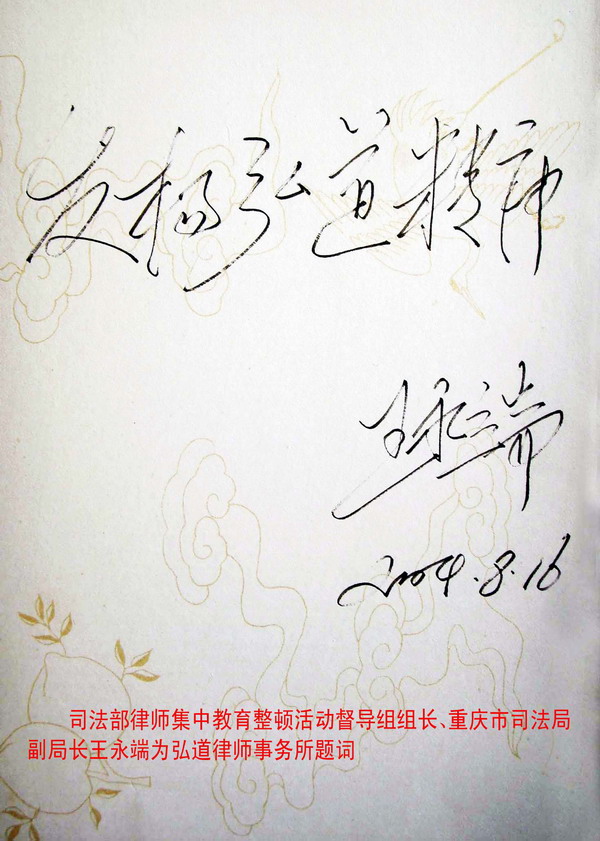 发扬弘道精神
王永端
2004.8.16
司法部律师集中教育整顿活动督导组组长、重庆市司法局
副局长王永端为弘道律师事务所题词